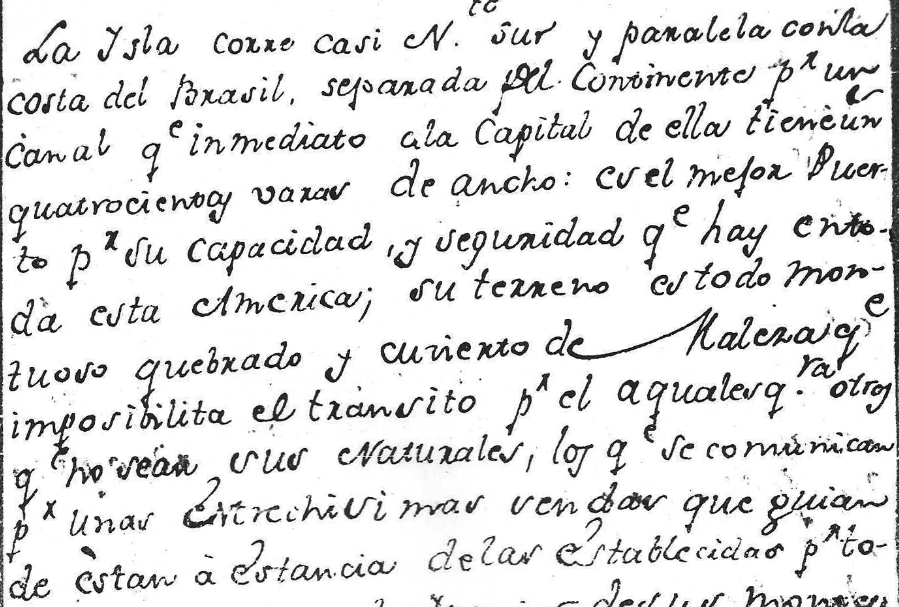 La Ysla corre casi N.te Sur y paralela con la
costa del Brasil, separada del Continente pr un
Canal qe inmediato ala Capital de ella tiene ùn
quatrocientas varas de ancho: es el mejor Puer-
to pr su capacidad, y seguridad qe hay ento-
da esta America; su terreno es todo mon-
tuoso quebrado y cuvierto de Maleza qe
imposibilita el transito pr el a qualesq.ra otros
qe no sean sus Naturales, los qe se comunican
pr unas estrechisimas sendas que guian
de èstan à Estancia delas Establecidas pr to-
de sus montes